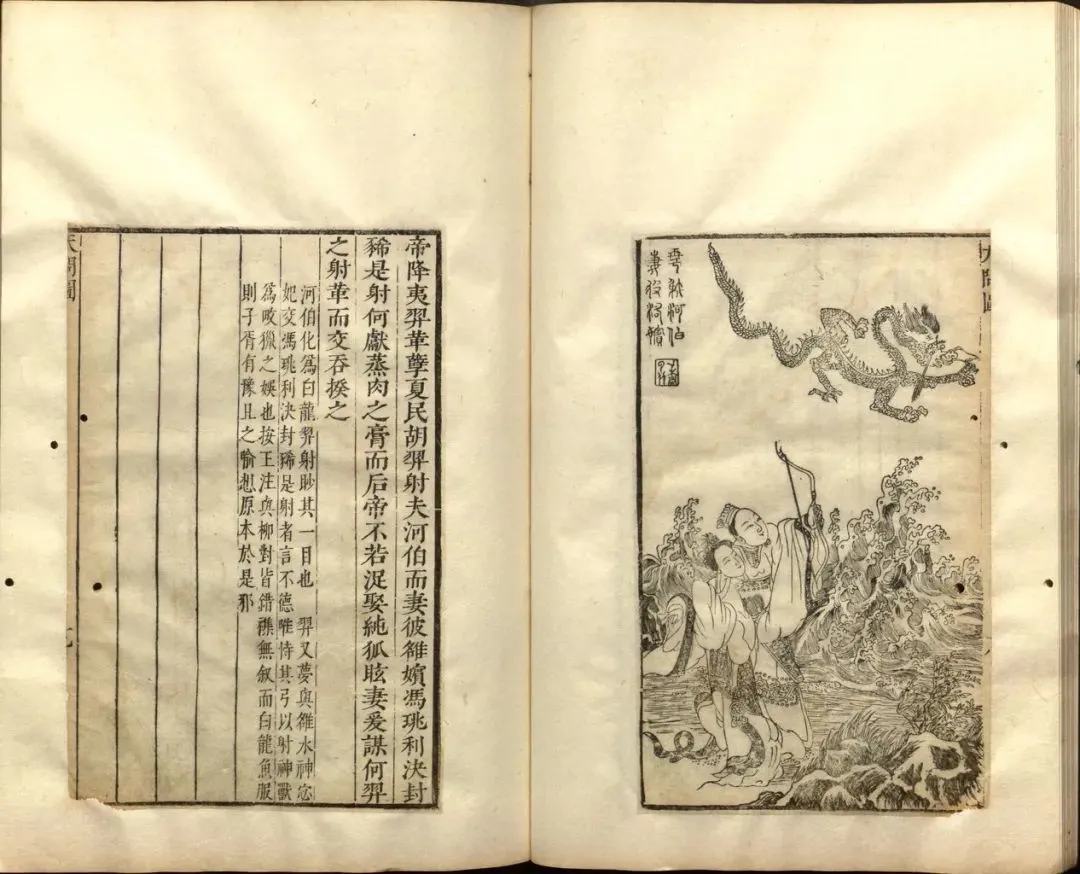 天問圖
羿射河伯
妻彼雒嬪
帝降夷羿革孽夏民胡羿射夫河伯而妻彼雒嬪馮珧利決封
豨是射何獻蒸肉之膏而后帝不若浞娶純狐眩妻爰謀何羿
之射革而交吞揆之
河伯化爲白龍羿射眇其一目也 羿又夢與雒水神宓
妃交馮珧利決封豨是射者言不德唯恃其弓以射神獸
爲畋獵之娛也按王注與柳對皆錯襍無叙而白龍魚服
則子胥有豫且之喻想原本於是邪
天問圖